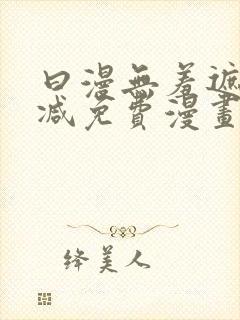 曰漫無羞遮
减免費漫畫
绛美人